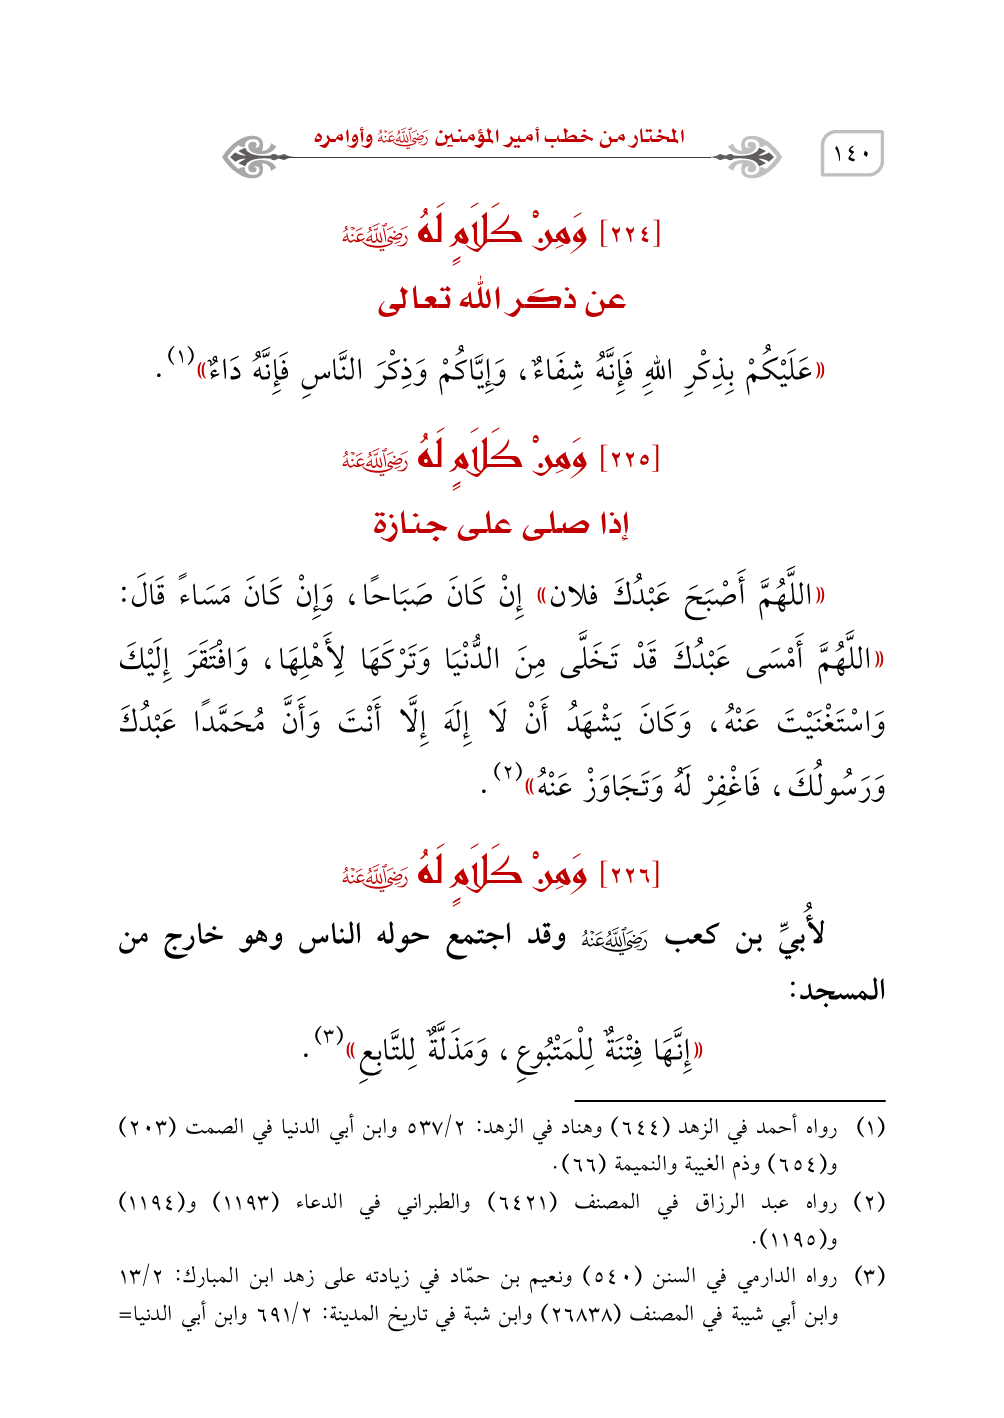 ١٤٠
المختار من خطب أمير المؤمنين رَضِيَ اللَّهُ عَنْهُ وأوامره
[٢٢٤] وَمِنْ كَلَامٍ لَهُ رَضِيَ اللَّهُ عَنْهُ
عن ذكر الله تعالى
«عَلَيْكُمْ بِذِكْرِ اللهِ فَإِنَّهُ شِفَاءٌ، وَإِيَّاكُمْ وَذِكْرَ النَّاسِ فَإِنَّهُ دَاءٌ»(١).
[٢٢٥] وَمِنْ كَلَامٍ لَهُ رَضِيَ اللَّهُ عَنْهُ
إذا صلى على جنازة
«اللَّهُمَّ أَصْبَحَ عَبْدُكَ فلان» إِنْ كَانَ صَبَاحًا، وَإِنْ كَانَ مَسَاءً قَالَ:
«اللَّهُمَّ أَمْسَى عَبْدُكَ قَدْ تَخَلَّى مِنَ الدُّنْيَا وَتَرْكَهَا لِأَهْلِهَا، وَافْتَقَرَ إِلَيْكَ
وَاسْتَغْنَيْتَ عَنْهُ، وَكَانَ يَشْهَدُ أَنْ لَا إِلَهَ إِلَّا أَنْتَ وَأَنَّ مُحَمَّدًا عَبْدُكَ
وَرَسُولُكَ، فَاغْفِرْ لَهُ وَتَجَاوَزْ عَنْهُ»(٢).
[٢٢٦] وَمِنْ كَلَامٍ لَهُ رَضِيَ اللَّهُ عَنْهُ
لأُبيِّ بن كعب رَضِيَ اللَّهُ عَنْهُ وقد اجتمع حوله الناس وهو خارج من
المسجد:
«إِنَّهَا فِتْنَةٌ لِلْمَتْبُوعِ، وَمَذَلَّةٌ لِلتَّابِعِ»(٣).
(١) رواه أحمد في الزهد (٦٤٤) وهناد في الزهد: ٥٣٧/٢ وابن أبي الدنيا في الصمت (٢٠٣)
و(٦٥٤) وذم الغيبة والنميمة (٦٦).
(٢) رواه عبد الرزاق في المصنف (٦٤٢١) والطبراني في الدعاء (١١٩٣) و(١١٩٤)
و(١١٩٥).
(٣) رواه الدارمي في السنن (٥٤٠) ونعيم بن حمّاد في زيادته على زهد ابن المبارك: ١٣/٢
وابن أبي شيبة في المصنف (٢٦٨٣٨) وابن شبة في تاريخ المدينة: ٦٩١/٢ وابن أبي الدنيا=